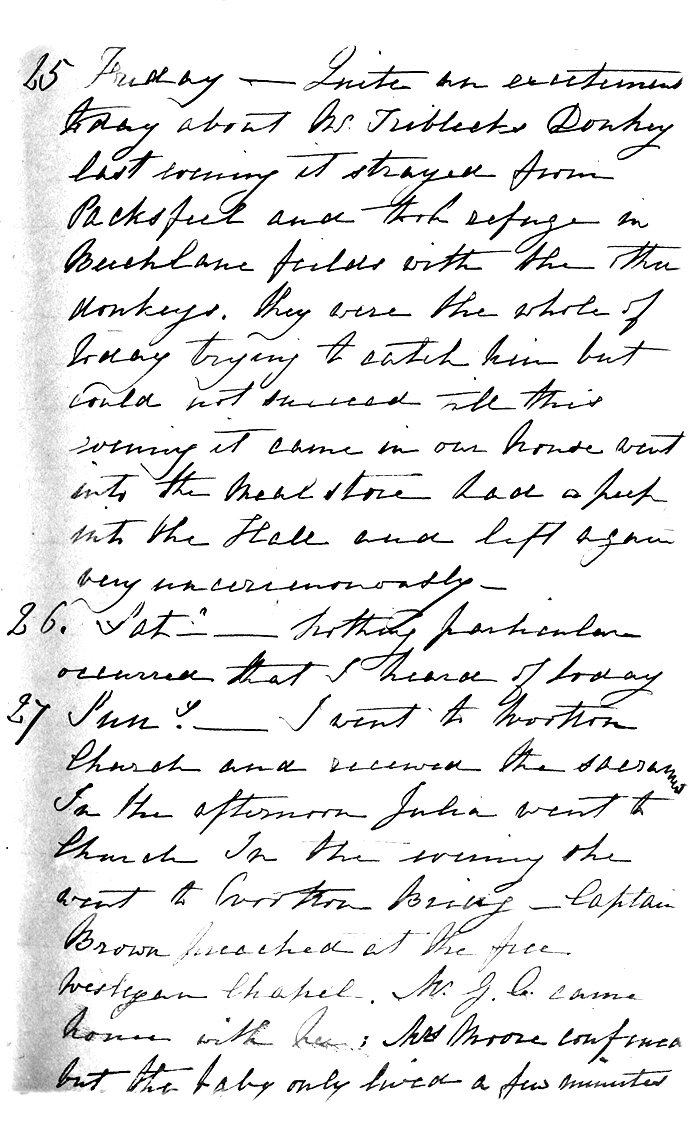 25 Friday — Quite an excitement
today about Mr. Triblecks Donkey
last evening it strayed from
Packsfeel and took refuge in
Beechlane fields with the other
donkeys. they were the whole of
today trying to catch him but
could not succeed till this
evening it came in our house went
into the Meal store had a peep
into the Hall and left again
very unceremoniously —
26. Satn — Nothing particular
occurred that I heard of today
27 Sund. — I went to Wootton
Church and received the sacrament
In the afternoon Julia went to
Church In the evening she
went to Wootton Bridg — Captain
Brown preached at the free
Wesleyan Chapel. Mr. J. C. came
home with her; Mrs Moore confined
but the baby only lived a few minutes